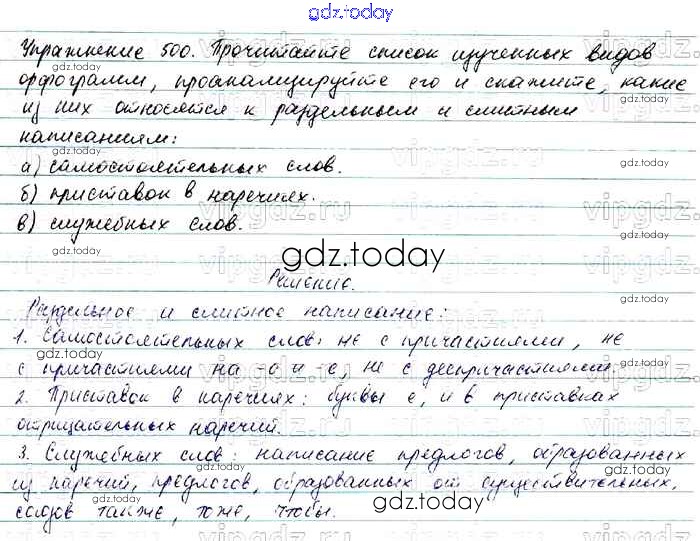 gdz.today
Упражнение 500. Прочитайте список изученных видов
орфограмм, проанализируйте его и скажите, какие
из них относятся к раздельным и слитным
написаниям:
а) самостоятельных слов.
б) приставок в наречиях.
в) служебных слов.
gdz.today
Решение.
Раздельное и слитное написание:
1. Самостоятельных слов: не с причастиями, не
с причастиями на -о и -е, не с деепричастиями.
2. Приставок в наречиях: буквы е, и в приставках
отрицательных наречий.
3. Служебных слов: написание предлогов, образованных
из наречий, предлогов, образованных от существительных,
союзов также, тоже, чтобы.
gdz.today
vipgdz.ru